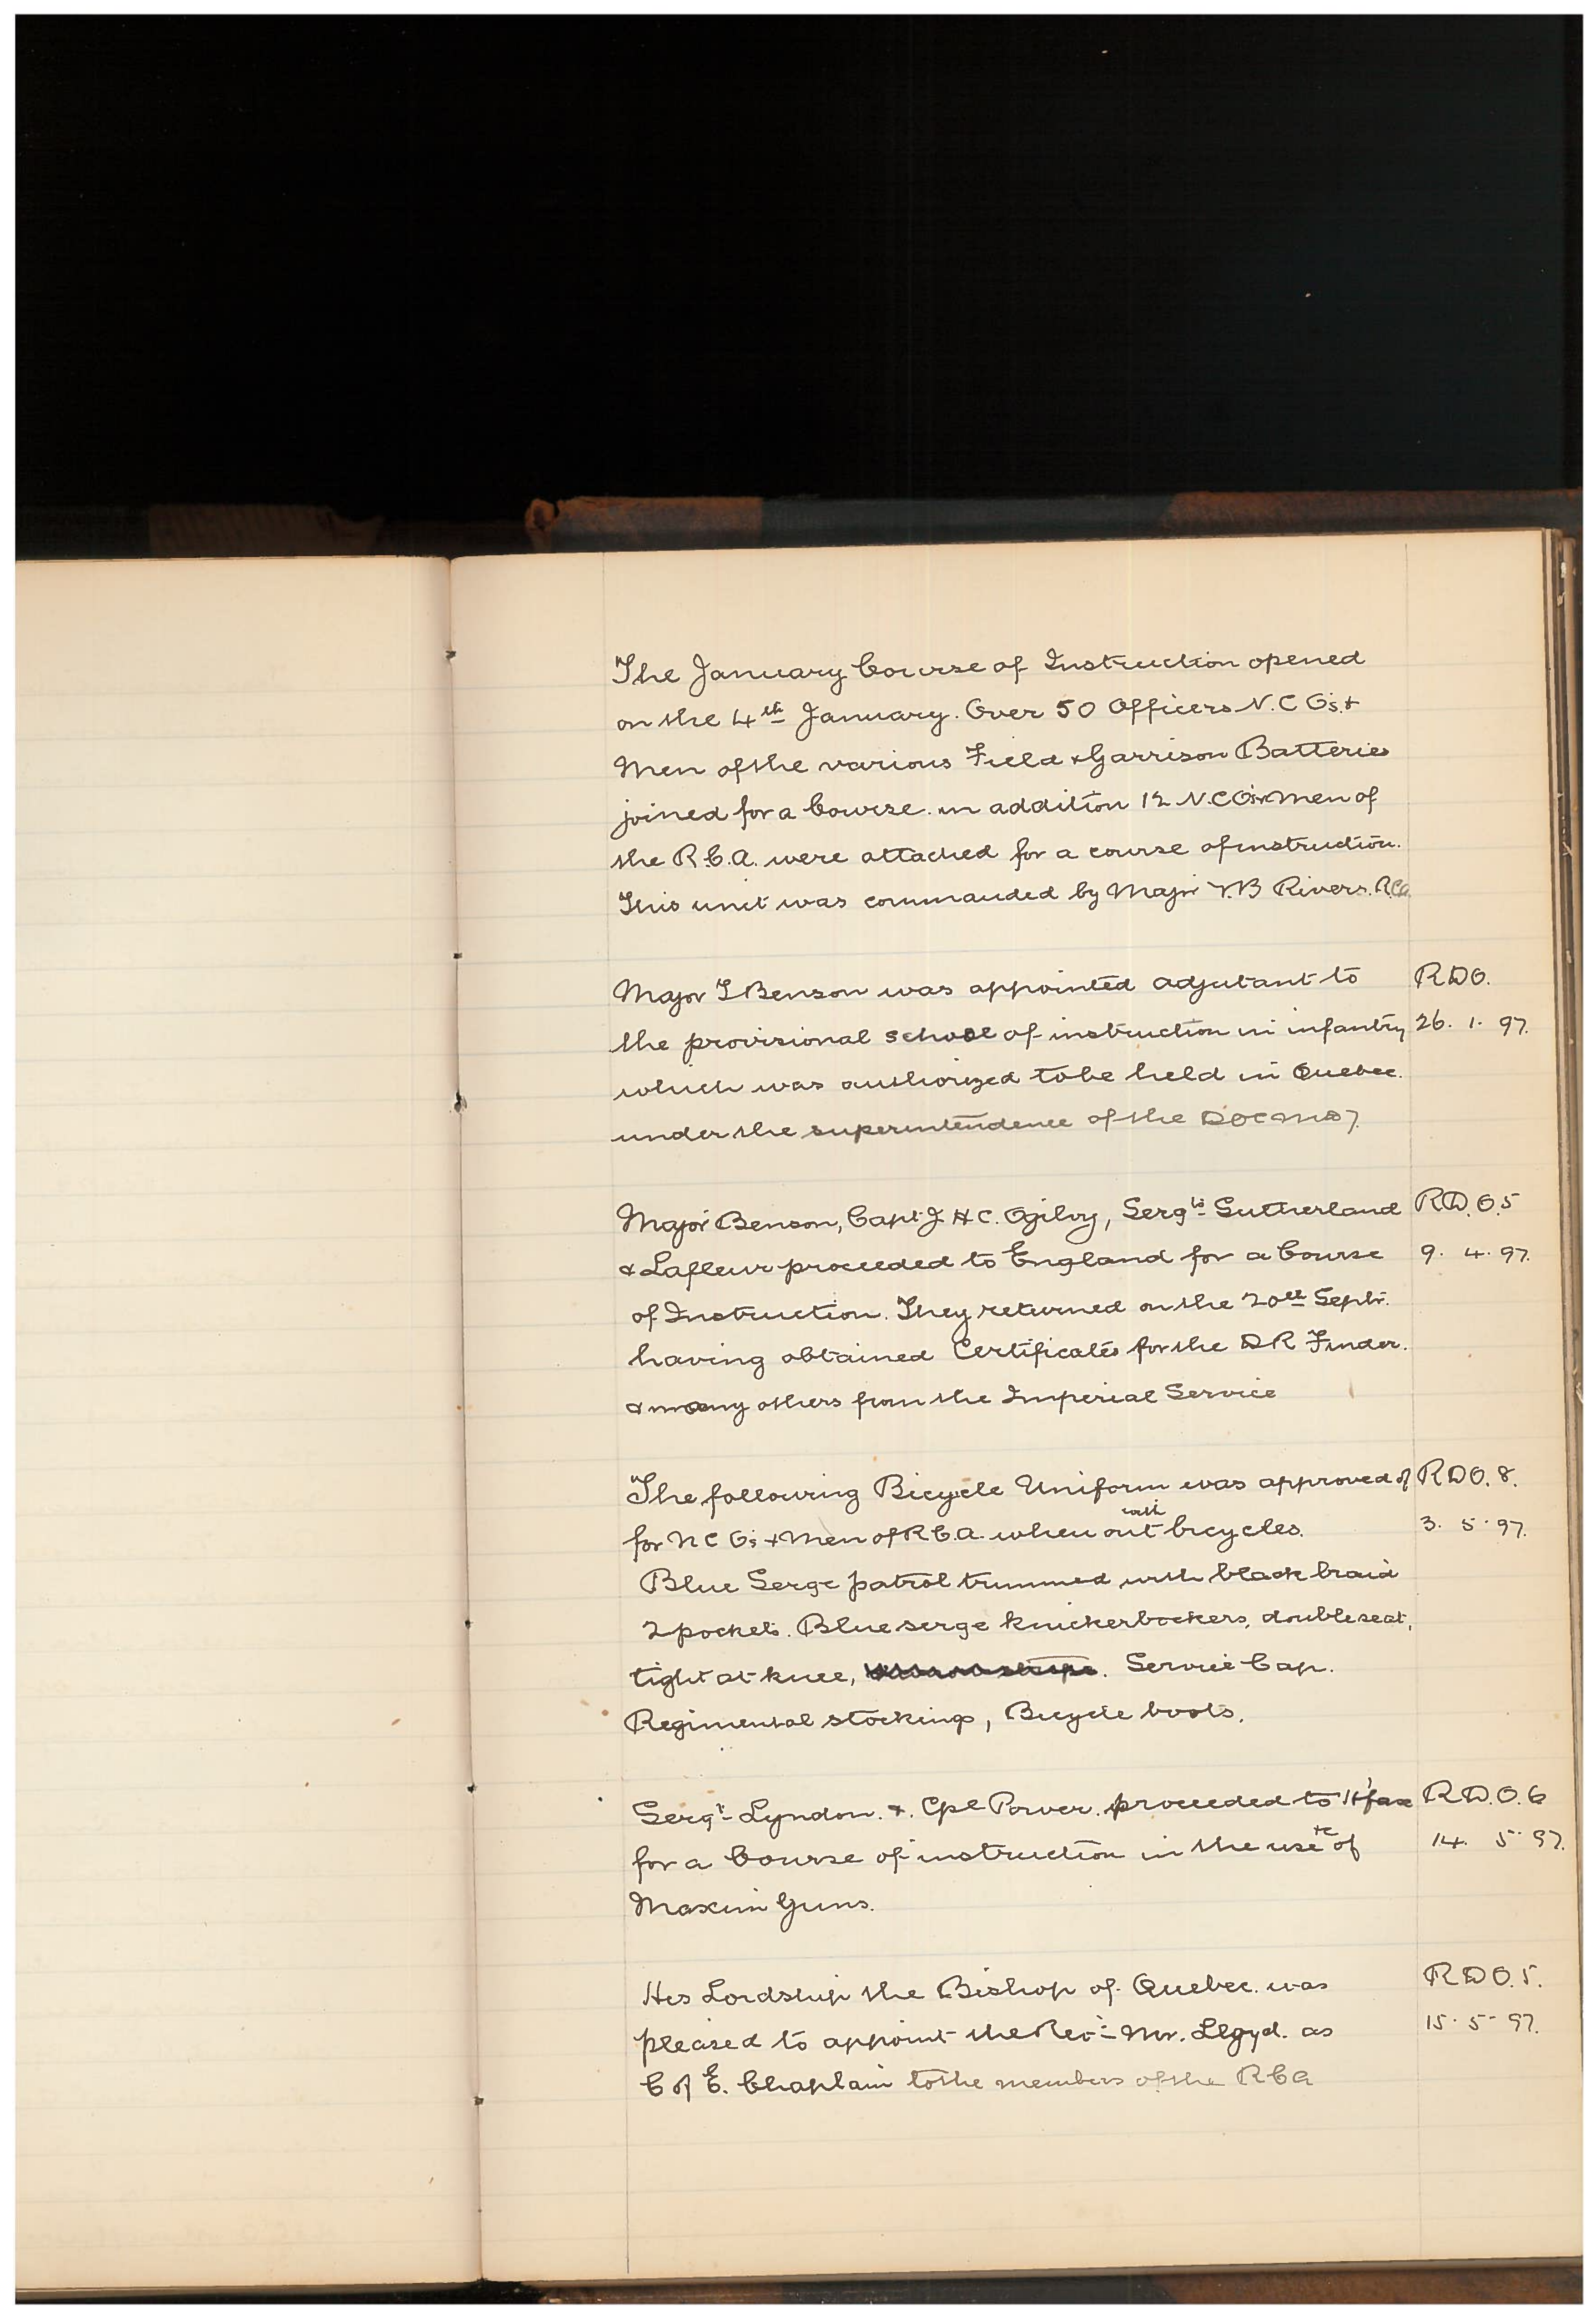 The January Course of Instruction opened
on the 4th January. Over 50 Officers N.C.O's. &
Men of the various Field & Garrison Batteries
joined for a Course. in addition 12 N.C.O's & Men of
the R.C.A. were attached for a course of instruction.
This unit was commanded by Major V.B Rivers. RCA.
Major T Benson was appointed adjutant to RDO.
the provisional school of instruction in infantry 26. 1. 97.
which was authorized to be held in Quebec.
under the superintendence of the DOC MD 7.
Major Benson, Capt J H C. Ogilvy, Sergts Sutherland R.D.O.5
& Lafleur proceeded to England for a Course 9. 4. 97.
of Instruction. They returned on the 20th Septr.
having obtained Certificates for the DR Finder.
& many others from the Imperial Service
The following Bicycle Uniform was approved of RDO. 8.
for N C O's & Men of R.C.A. when out with bicycles. 3. 5. 97.
Blue Serge patrol trimmed with black braid
2 pockets. Blue serge knickerbockers, double seat,
tight at knee, . Service Cap.
Regimental stockings, Bicycle boots.
Sergt Lyndon. &. Cpl Power. proceeded to H'fax R.D.O.6
for a Course of instruction in the use &c of 14. 5. 97.
Maxim Guns.
His Lordship the Bishop of Quebec. was RDO. 5.
pleased to appoint the Revd Mr. Lloyd. as 15. 5. 97.
C of E. Chaplain to the members of the RCA